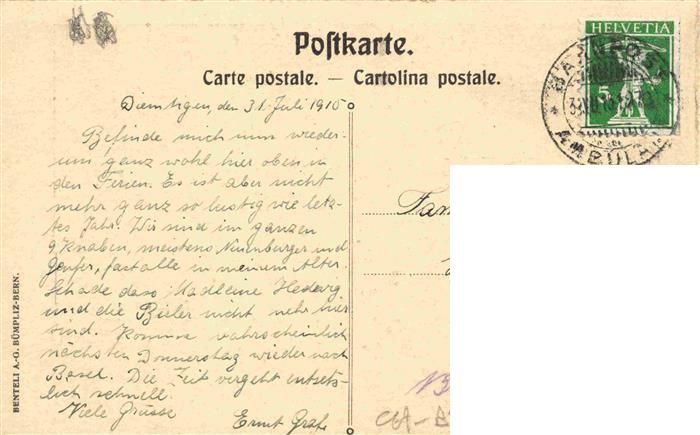 HELVETIA
5
Postkarte.
Carte postale. — Cartolina postale.
BAHNPOST
AMBULA
Diemtigen, den 31. Juli 1915
Befinde mich nun wieder-
um ganz wohl hier oben in
den Ferien. Es ist aber nicht
mehr ganz so lustig wie letz-
tes Jahr. Wir sind im ganzen
9 Knaben, meistens Nurenburger und
Genfer, fast alle in meinem Alter.
Schade dass Madleine Hedwig
und die Bieler nicht mehr hier
sind. Komme wahrscheinlich
nächsten Donnerstag wieder nach
Basel. Die Zeit vergeht entsetz-
lich schnell.
Viele Grüsse
Ernst Graf
Fam
BENTELI A.-G. BÜMPLIZ-BERN.